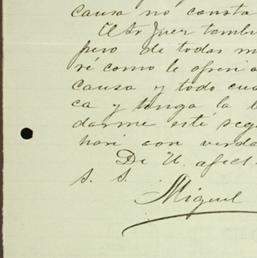 causa no consta
pero de todos m
ré como le ofreci a
causa y todo cua
ca y tenga la b
darme esté seg
han con verda
De U. afect
S. S.
Miguel